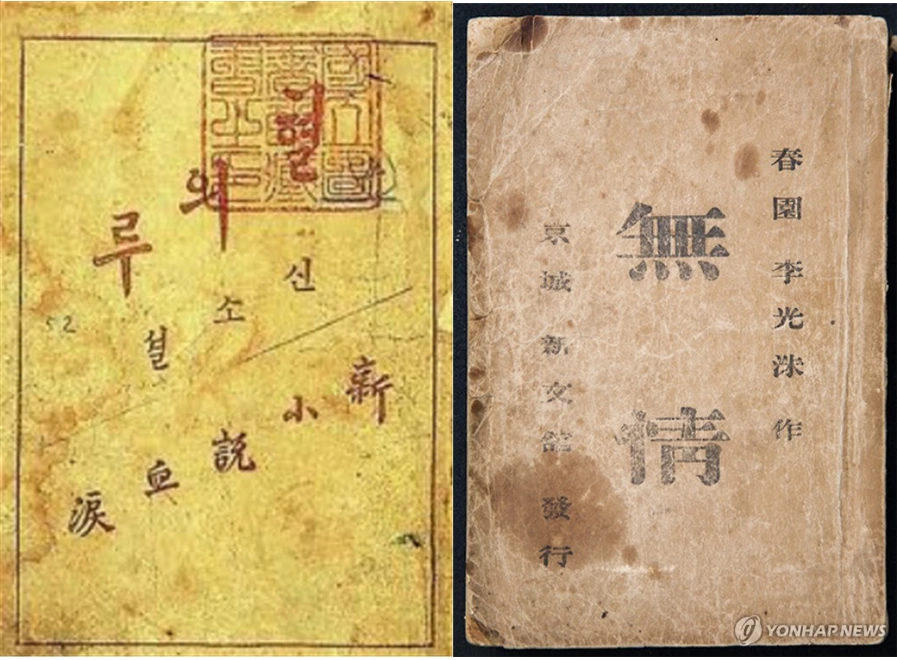 혈의루
신소셜
新小說 血淚
52
春園 李光洙 作
無情
京城 新文館 發行
YONHAP NEWS